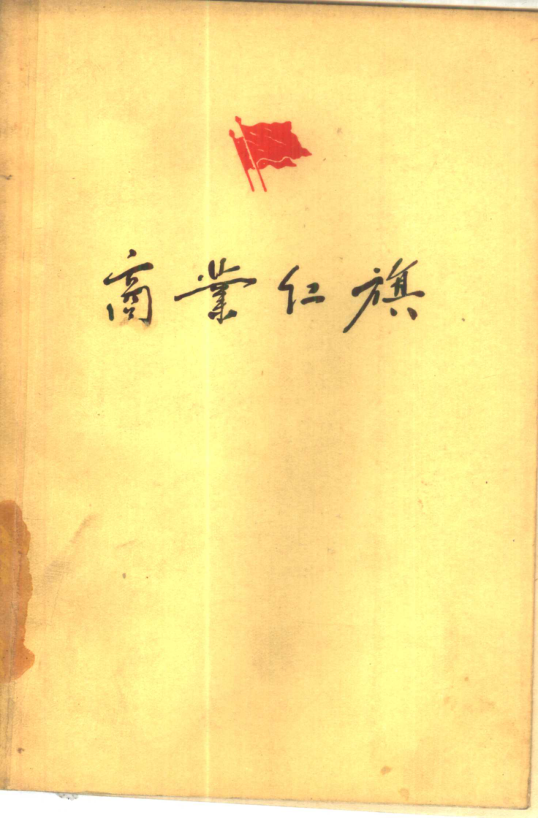 商業紅旗